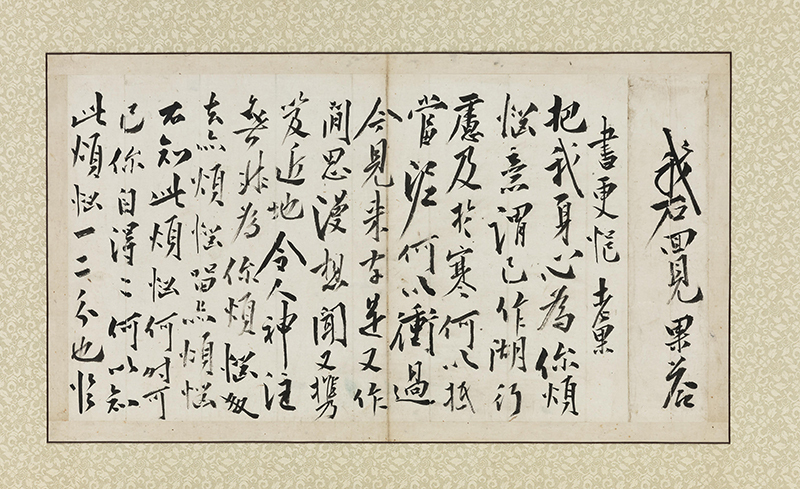 我石四見 果菴
書更悒 老果
把我身心為你煩
惱意謂已作湖行
慮及於寒何以抵
當何以衝過
今見来字是又作
閒思漫想聞又攜
笈近地令人神注
無非為你煩惱奴
去亦煩惱留亦煩惱
不知此煩惱何時可
已你自得〻何以知
此煩惱一二分也臨